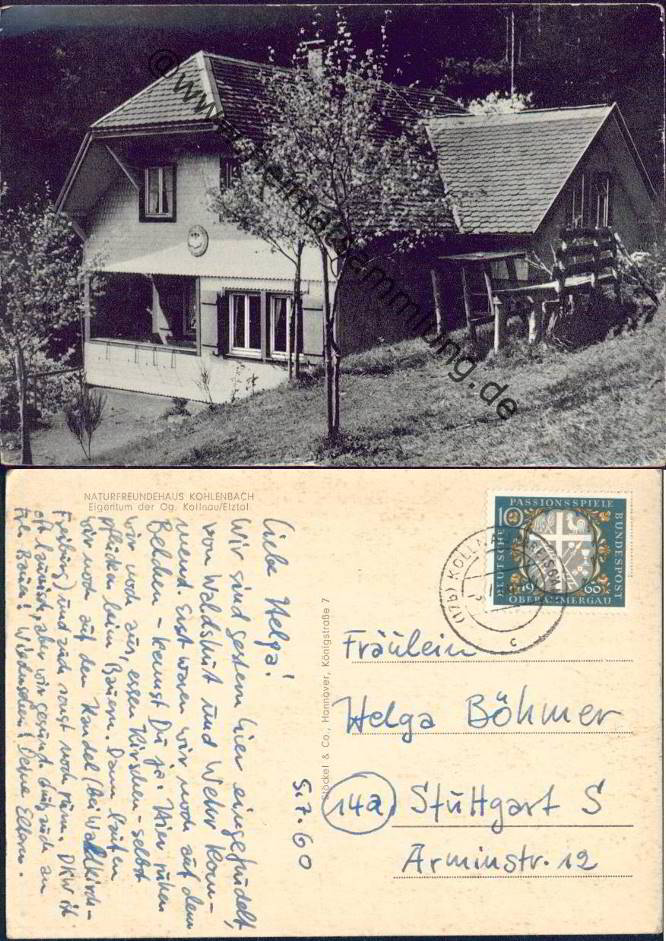 www.
sammlung.de
NATURFREUNDEHAUS KOHLENBACH
Eigentum der Og. Kollnau/Elztal
Liebe Helga!
Wir sind gestern hier eingetrudelt,
von Waldshut und Wehr kom-
mend. Erst waren wir noch auf dem
Belchen - kennst Du ja. Hier ruhen
wir noch aus, essen Kirschen - selbst
pflücken beim Bauern. Dann laufen
wir noch auf den Kandel (bei Waldkirch-
Freiburg) und auch sonst noch rum. DKW ist
oft launisch, aber wir gesund. Auch an
Frl. Bauer! Wiedersehen! Deine Eltern.
5.7.60
& Co., Hannover, Königstraße 7
PASSIONSSPIELE
10
DEUTSCHE BUNDESPOST
1960
OBERAMMERGAU
(17b) KOLLNAU
c
Fräulein
Helga Böhmer
14a Stuttgart S
Arminstr. 12